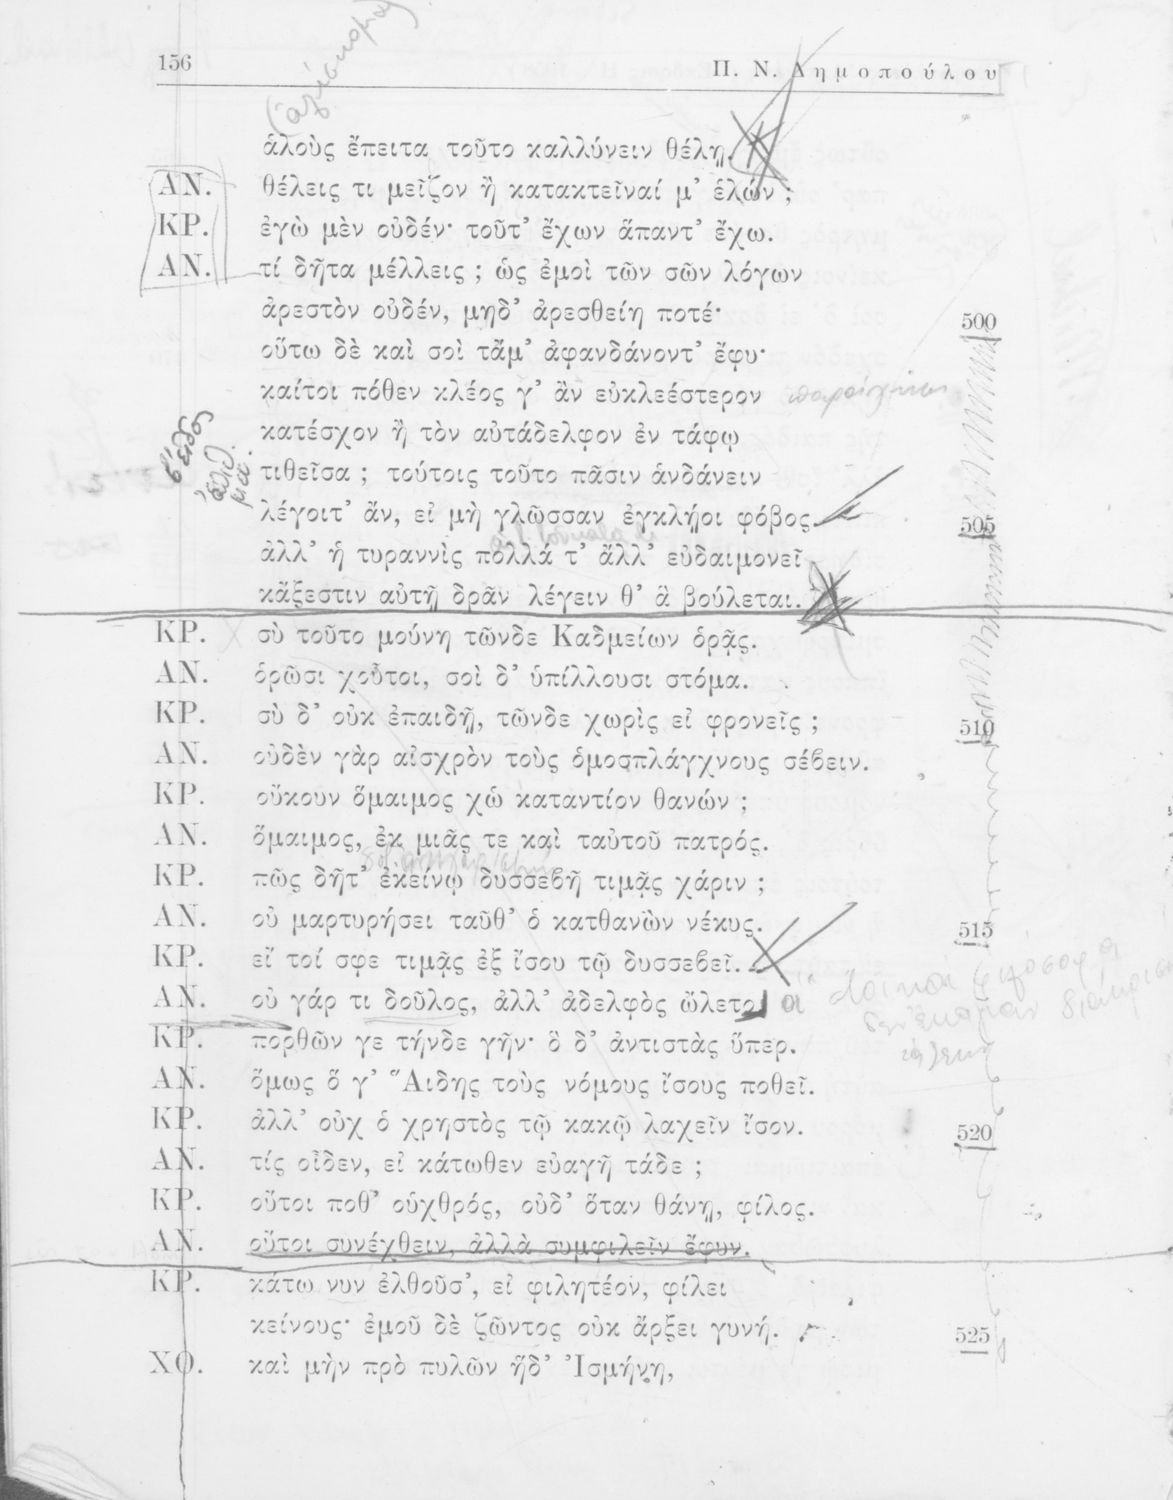 156 Π. Ν. Δημοπούλου
(ἁλίσκομαι)
ἁλοὺς ἔπειτα τοῦτο καλλύνειν θέλῃ.
ΑΝ. θέλεις τι μεῖζον ἢ κατακτεῖναί μ' ἑλών ;
ΚΡ. ἐγὼ μὲν οὐδέν· τοῦτ' ἔχων ἅπαντ' ἔχω.
ΑΝ. τί δῆτα μέλλεις ; ὡς ἐμοὶ τῶν σῶν λόγων
ἀρεστὸν οὐδέν, μηδ' ἀρεσθείη ποτέ· 500
οὕτω δὲ καὶ σοὶ τἄμ' ἀφανδάνοντ' ἔφυ·
καίτοι πόθεν κλέος γ' ἂν εὐκλεέστερον
κατέσχον ἢ τὸν αὐτάδελφον ἐν τάφῳ
τιθεῖσα ; τούτοις τοῦτο πᾶσιν ἁνδάνειν
λέγοιτ' ἄν, εἰ μὴ γλῶσσαν ἐγκλῄοι φόβος. 505
ἀλλ' ἡ τυραννὶς πολλά τ' ἄλλ' εὐδαιμονεῖ
κἄξεστιν αὐτῇ δρᾶν λέγειν θ' ἃ βούλεται.
ΚΡ. σὺ τοῦτο μούνη τῶνδε Καδμείων ὁρᾷς.
ΑΝ. ὁρῶσι χοὖτοι, σοὶ δ' ὑπίλλουσι στόμα.
ΚΡ. σὺ δ' οὐκ ἐπαιδῇ, τῶνδε χωρὶς εἰ φρονεῖς ; 510
ΑΝ. οὐδὲν γὰρ αἰσχρὸν τοὺς ὁμοσπλάγχνους σέβειν.
ΚΡ. οὔκουν ὅμαιμος χὠ καταντίον θανών ;
ΑΝ. ὅμαιμος, ἐκ μιᾶς τε καὶ ταὐτοῦ πατρός.
ΚΡ. πῶς δῆτ' ἐκείνῳ δυσσεβῆ τιμᾷς χάριν ;
ΑΝ. οὐ μαρτυρήσει ταῦθ' ὁ κατθανὼν νέκυς. 515
ΚΡ. εἴ τοί σφε τιμᾷς ἐξ ἴσου τῷ δυσσεβεῖ.
ΑΝ. οὐ γάρ τι δοῦλος, ἀλλ' ἀδελφὸς ὤλετο.
ΚΡ. πορθῶν γε τήνδε γῆν· ὃ δ' ἀντιστὰς ὕπερ.
ΑΝ. ὅμως ὅ γ' Ἅιδης τοὺς νόμους ἴσους ποθεῖ.
ΚΡ. ἀλλ' οὐχ ὁ χρηστὸς τῷ κακῷ λαχεῖν ἴσον. 520
ΑΝ. τίς οἶδεν, εἰ κάτωθεν εὐαγῆ τάδε ;
ΚΡ. οὔτοι ποθ' οὑχθρός, οὐδ' ὅταν θάνῃ, φίλος.
ΑΝ. οὔτοι συνέχθειν, ἀλλὰ συμφιλεῖν ἔφυν.
ΚΡ. κάτω νυν ἐλθοῦσ', εἰ φιλητέον, φίλει
κείνους· ἐμοῦ δὲ ζῶντος οὐκ ἄρξει γυνή. 525
ΧΟ. καὶ μὴν πρὸ πυλῶν ἥδ' Ἰσμήνη,